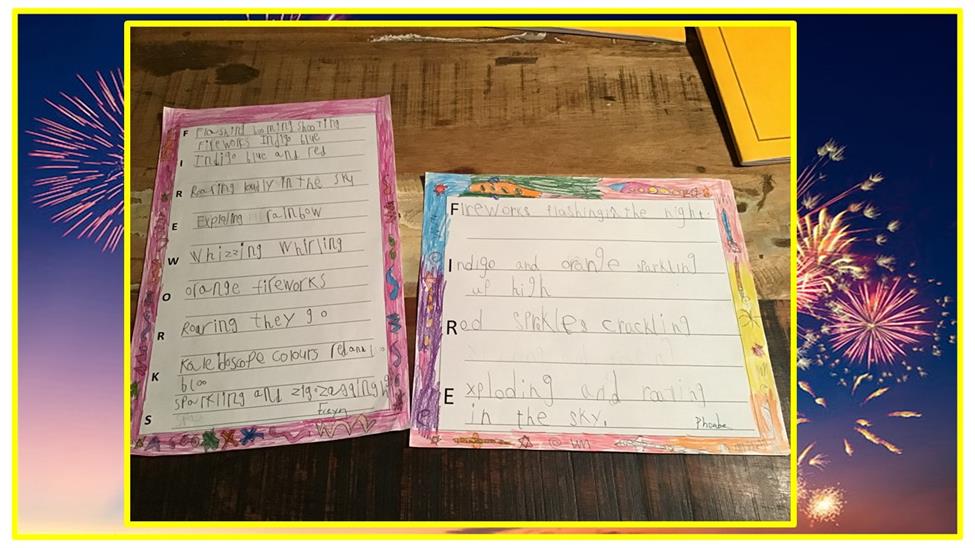 F Flashind booming shooting
fireworks Indigo blue
I Indigo blue and red
R Roaring loudly in the sky
E Exploding rainbow
W Whizzing Whirling
O orange fireworks
R Roaring they go
K Kaleidoscope colours red and
bloo
S sparkling and zig-zagging
FIreworks flashing in the night.
Indigo and orange sparkling
up high
Red sprkles crackling
Exploding and roaring
in the sky.
Phoebe